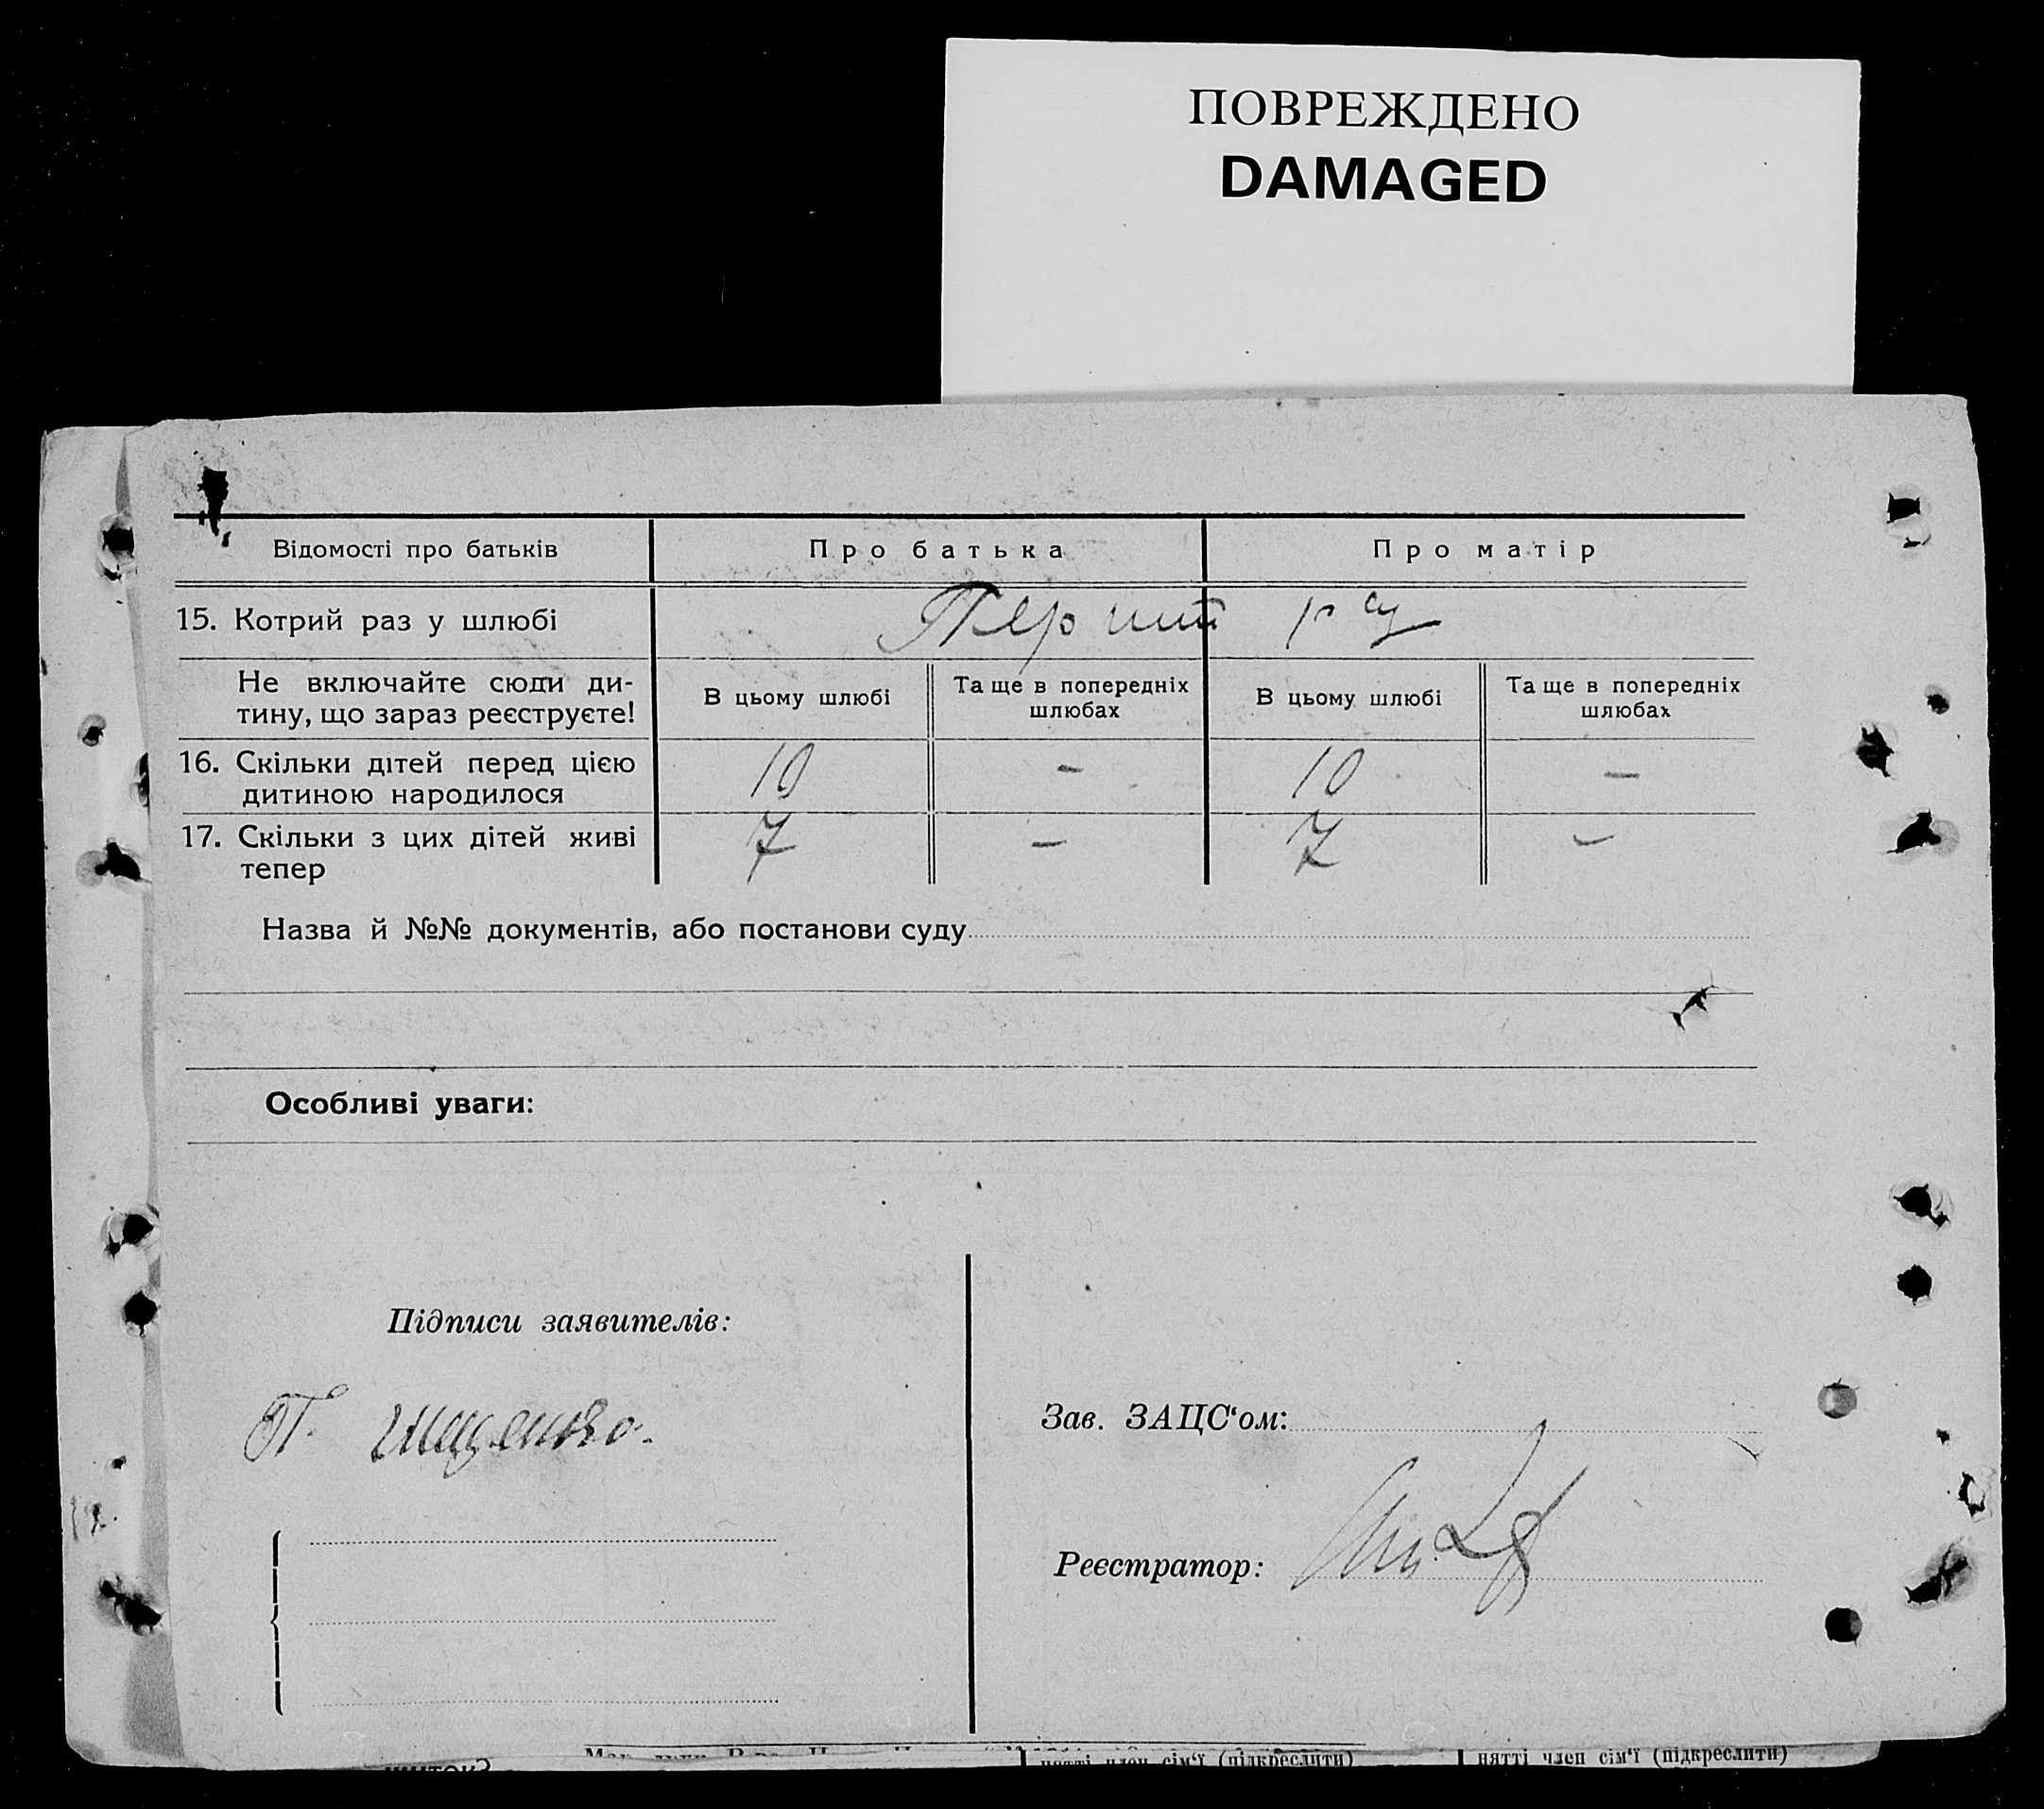 ПОВРЕЖДЕНО
DAMAGED
Відомості про батьків
Про батька
Про матір
15. Котрий раз у шлюбі
Перший раз
Не включайте сюди ди-
тину, що зараз реєструєте!
В цьому шлюбі
Та ще в попередніх
шлюбах
В цьому шлюбі
Та ще в попередніх
шлюбах
16. Скільки дітей перед цією
дитиною народилося
10
–
10
–
17. Скільки з цих дітей живі
тепер
7
–
7
–
Назва й №№ документів, або постанови суду
Особливі уваги:
Підписи заявителів:
П.
Зав. ЗАЦС‘ом:
Реєстратор:
член сім‘ї (підкреслити)
нятті член сім‘ї (підкреслити)